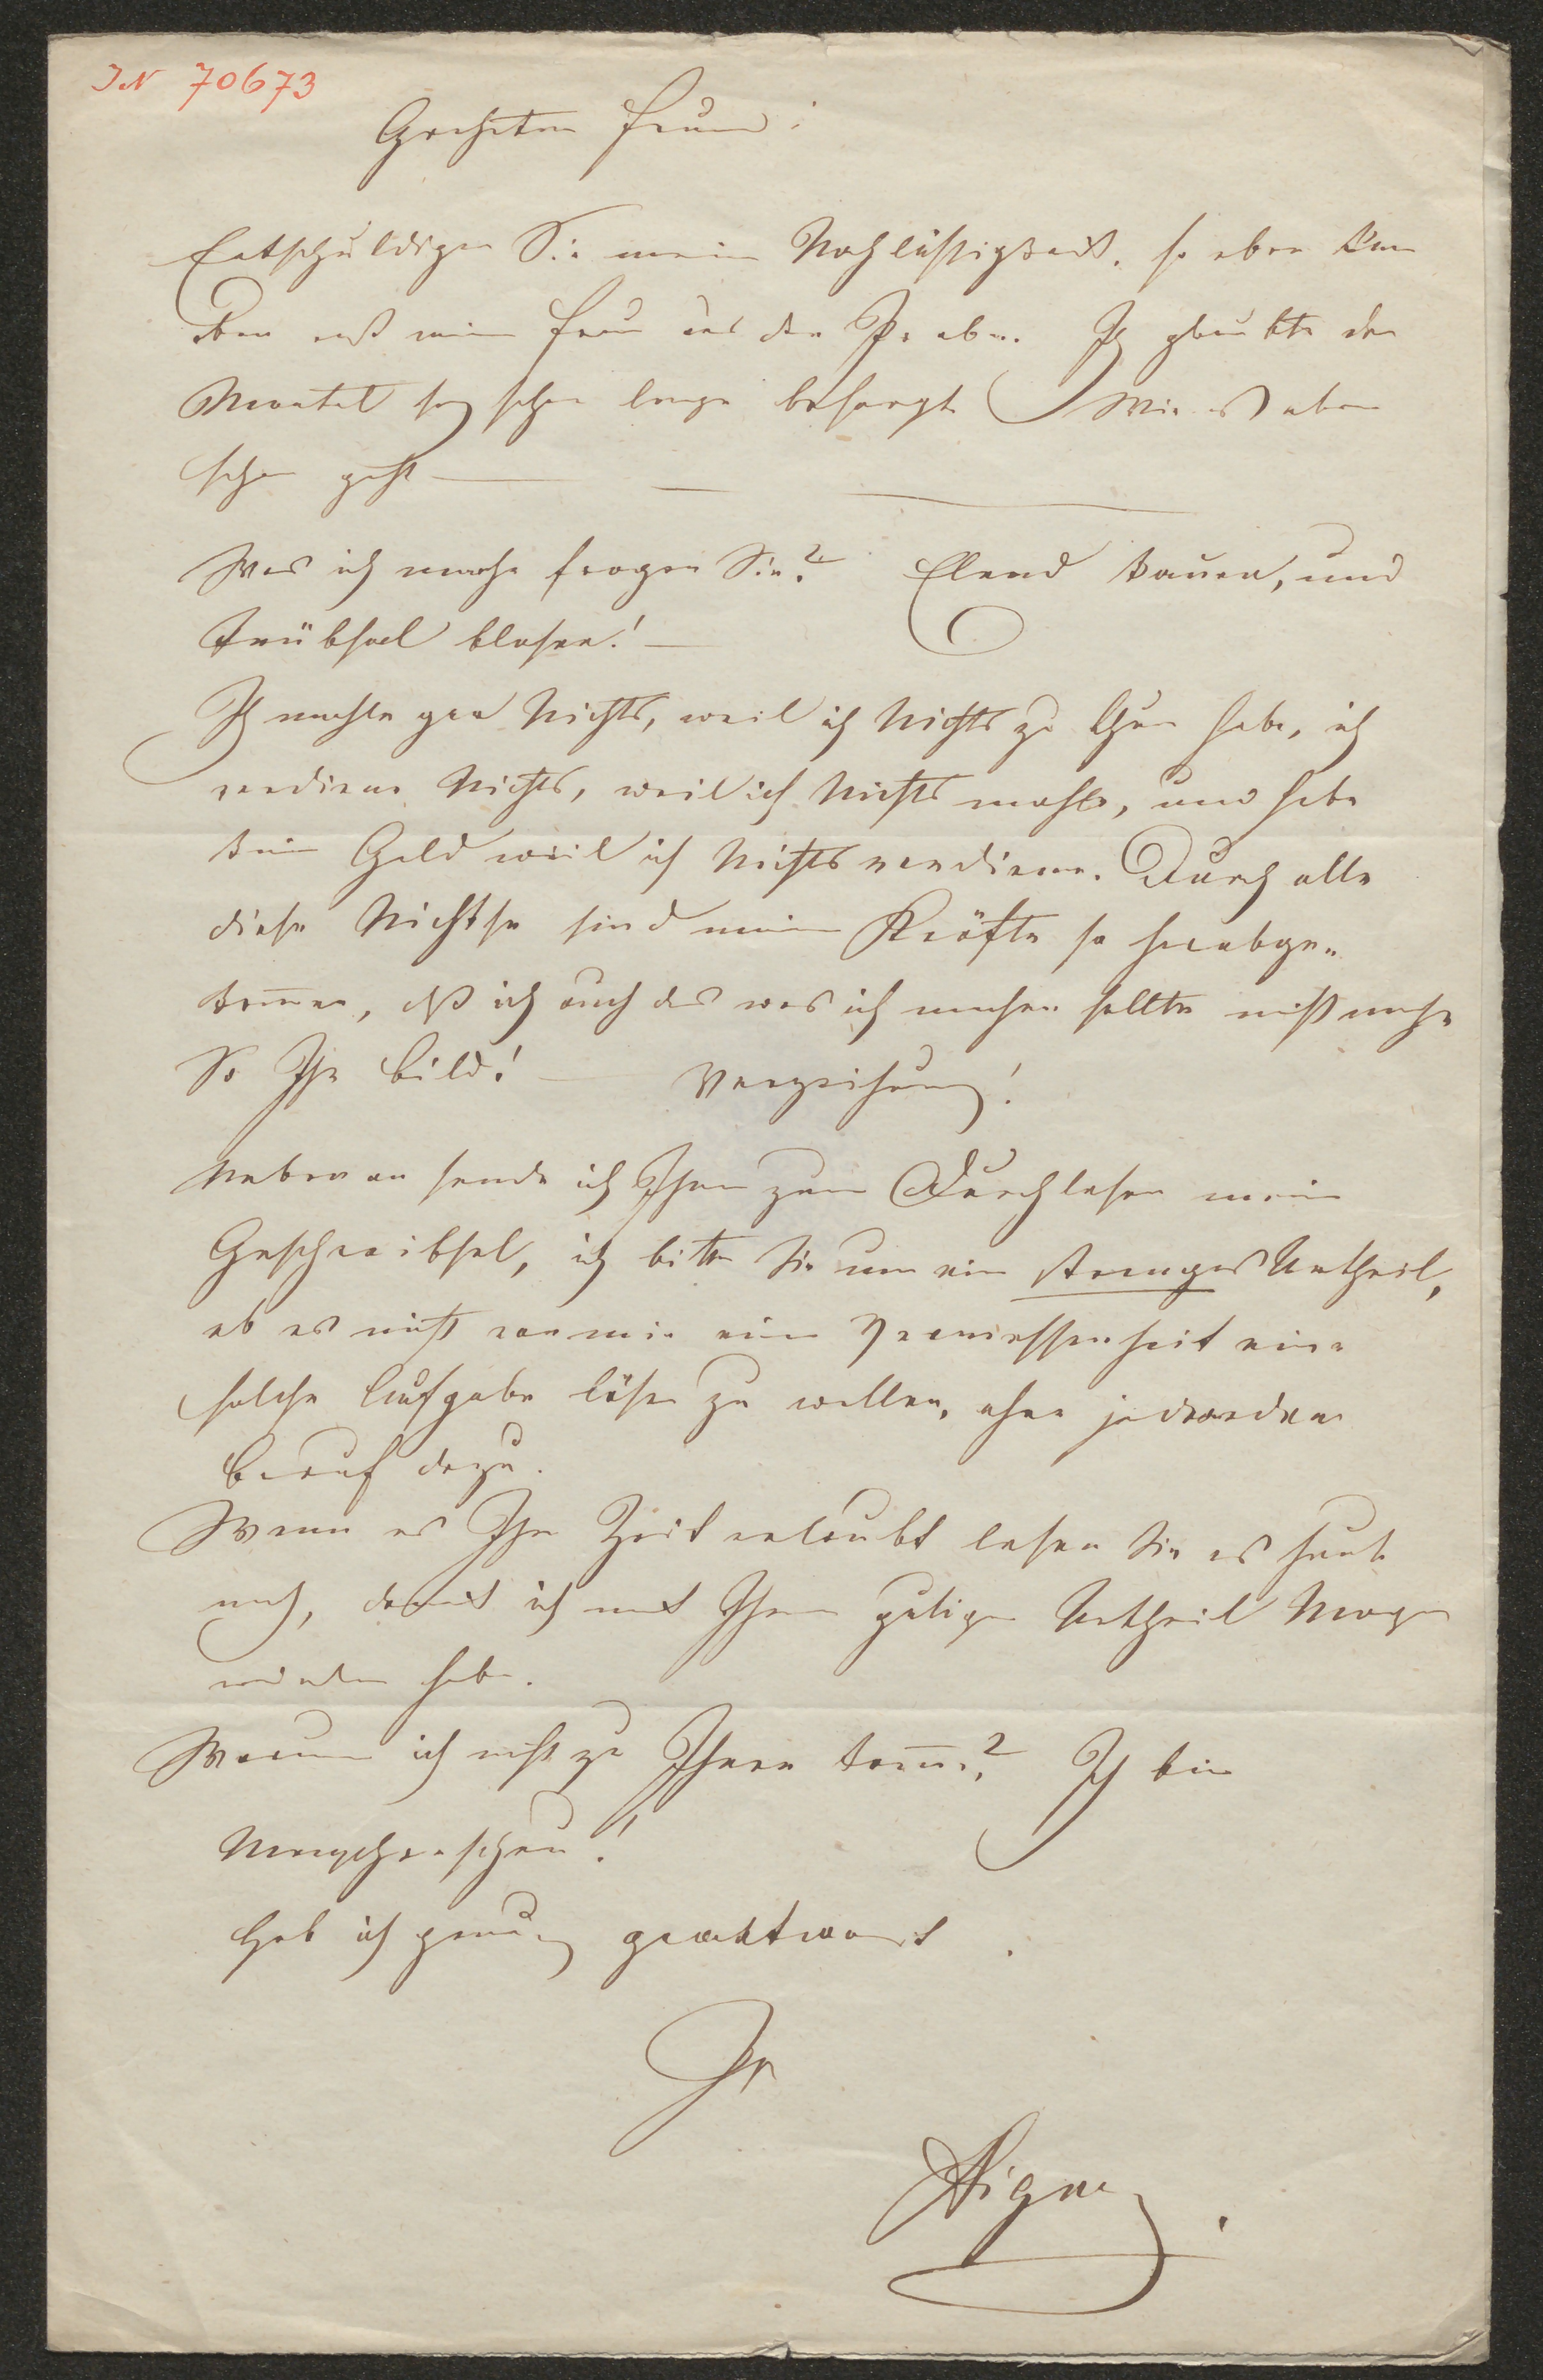 IN 70673
Geehrter Freund!
Entschuldigen Sie meine Nachläßigkeit. so eben kam
erst meine Frau aus der Ich glaubte der
Mantel sey schon lange besorgt Wie es aber
schon geht —
Was ich mache fragen Sie? Elend kauen, und
Trübsal blasen! —
Ich mahle gar Nichts, weil ich Nichts zu thun habe, ich
verdiene Nichts, weil ich Nichts mahle, und habe
kein Geld weil ich Nichts verdiene. Durch alle
diese Nichtse sind meine Kräfte so herabge-
kom̅en, daß ich auch das was ich machen sollte nicht mache
So Ihr Bild! — Verzeihung!
Nebenan sende ich Ihnen zum Durchlesen mein
Geschreibsel, ich bitte Sie um ein strenges Urtheil,
ob es nicht von mir eine Vermessenheit eine
solche Aufgabe lösen zu wollen, ohne jedweden
Beruf dazu.
Wenn es Ihre Zeit erlaubt lesen Sie es heute
noch, damit ich mit Ihrem gütigen Urtheil Morgen
wieder habe.
Warum ich nicht zu Ihnen kom̅e? Ich bin
Menschenscheu!
Hab ich genug geantwortet.
Ihr
Aigner